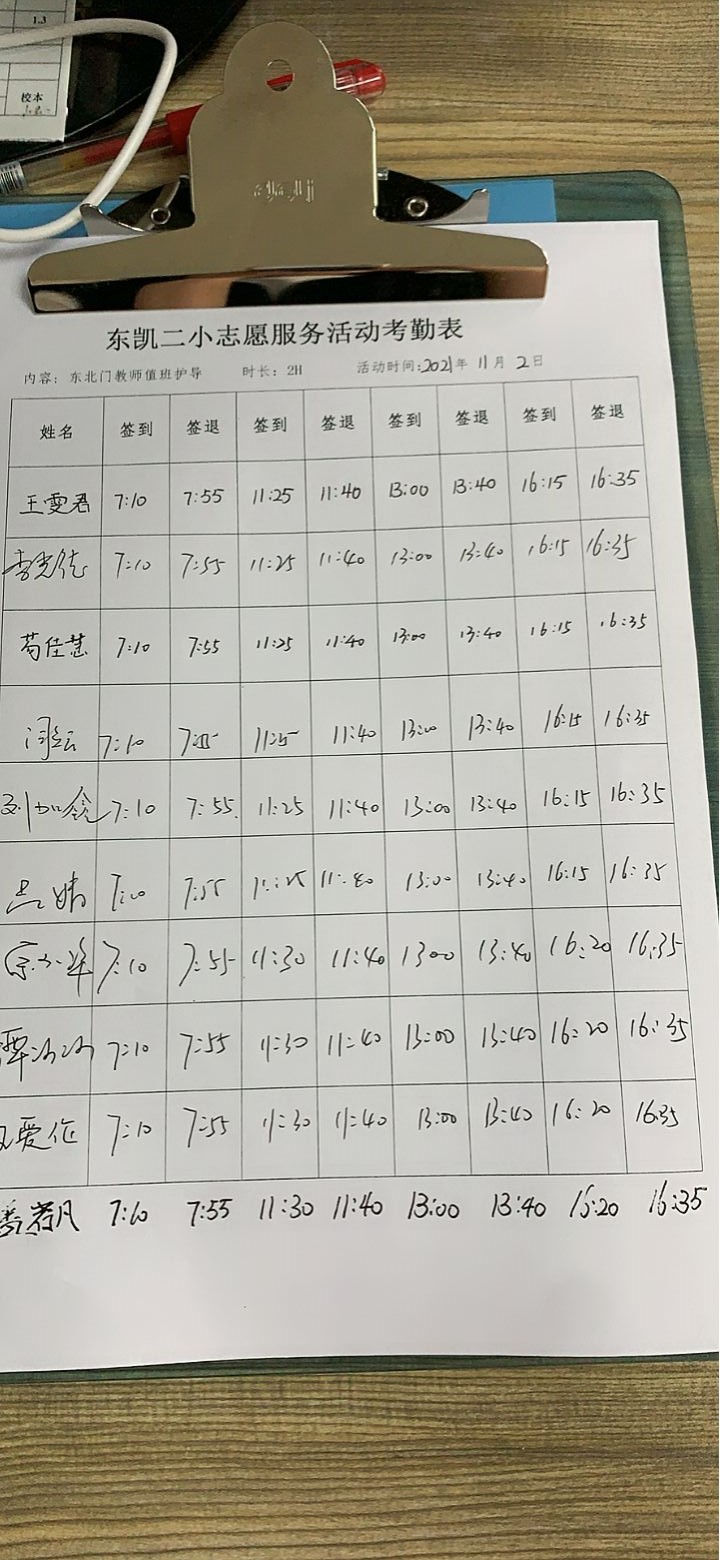 1.3
校本
deli
东凯二小志愿服务活动考勤表
内容：东北门教师值班护导 时长：2H 活动时间:2021年 11月 2日
姓名 签到 签退 签到 签退 签到 签退 签到 签退
王雯君 7:10 7:55 11:25 11:40 13:00 13:40 16:15 16:35
7:10 7:55 11:25 11:40 13:00 13:40 16:15 16:35
苟佳慧 7:10 7:55 11:25 11:40 13:00 13:40 16:15 16:35
7:10 11:40 13:00 13:40 16:15 16:35
7:10 7:55 11:25 11:40 13:00 13:40 16:15 16:35
吕婧 7:55 11:25 11:40 13:00 13:40 16:15 16:35
7:10 7:55 11:30 11:40 13:00 13:40 16:20 16:35
7:10 7:55 11:30 11:40 13:00 13:40 16:20 16:35
7:10 7:55 11:30 11:40 13:00 13:40 16:20 16:35
7:10 7:55 11:30 11:40 13:00 13:40 16:20 16:35